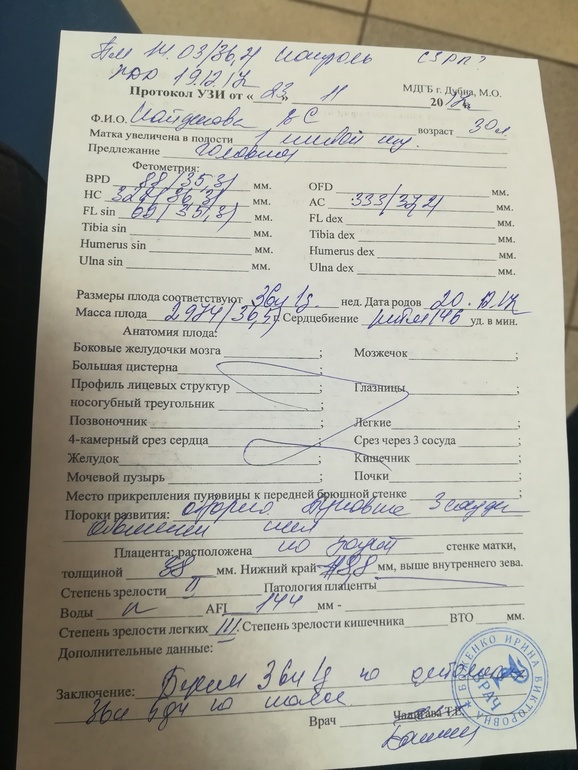 ПМ 14.03/36,2/ контроль СЗРП?
ПДР 19.12.17
МДГБ г. Дубна, М.О.
Протокол УЗИ от « 23 » 11 2017г.
Ф.И.О. Е С возраст 30 л
Матка увеличена в полости 1 живой
Предлежание головная
Фетометрия:
BPD 88/35,3/ мм. OFD мм.
HC мм. AC 333/37,2/ мм.
FL sin 69/35,3/ мм. FL dex мм.
Tibia sin мм. Tibia dex мм.
Humerus sin мм. Humerus dex мм.
Ulna sin мм. Ulna dex мм.
Размеры плода соответствуют 36н 1д нед. Дата родов 20.
Масса плода 2974/36,5/ г. Сердцебиение ритм 146 уд. в мин.
Анатомия плода:
Боковые желудочки мозга ; Мозжечок ;
Большая цистерна
Профиль лицевых структур ; Глазницы ;
носогубный треугольник
Позвоночник ; Легкие ;
4-камерный срез сердца ; Срез через 3 сосуда ;
Желудок ; Кишечник ;
Мочевой пузырь ; Почки ;
Место прикрепления пуповины к передней брюшной стенке ;
Пороки развития: пуповина 3 сосуда
шеи
Плацента: расположена по стенке матки,
толщиной 38 мм. Нижний край мм, выше внутреннего зева.
Степень зрелости II Патология плаценты
Воды N AFI 144 мм -
Степень зрелости легких III. Степень зрелости кишечника ВТО мм.
Дополнительные данные:
Заключение: Берем 36н 1д по
36н 4д по
Врач
БАЖЕНКО ИРИНА ВИКТОРОВНА
ВРАЧ